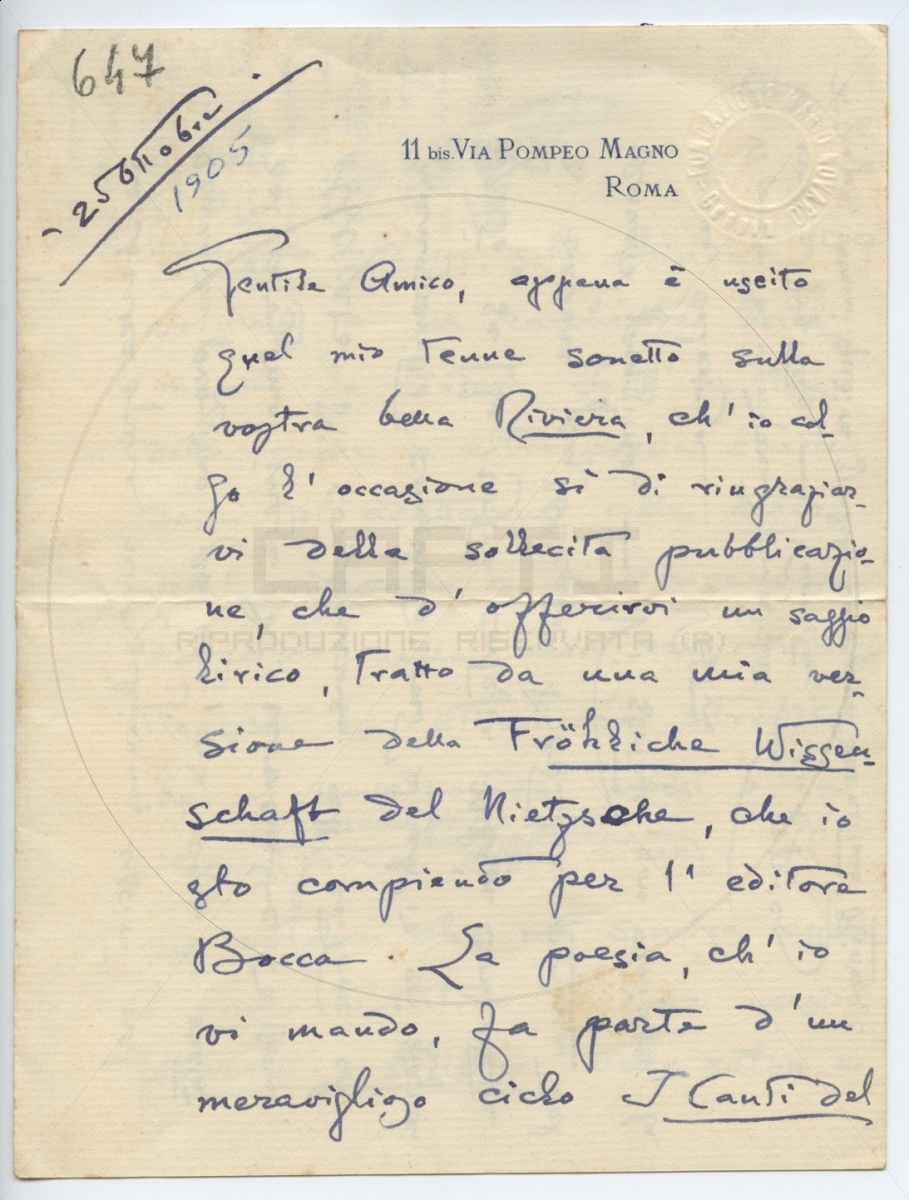 647
25 Ottobre
1905
11 bis. VIA POMPEO MAGNO
ROMA
Gentile Amico, appena è uscito
quel mio tenue sonetto sulla
vostra bella Riviera, ch' io col-
go l' occasione sì di ringraziar-
vi della sollecita pubblicazio-
ne, che d' offerirvi un saggio
lirico, tratto da una mia ver-
sione della Fröhliche Wissen-
schaft del Nietzsche, che io
sto compiendo per l' editore
Bocca. La poesia, ch' io
vi mando, fa parte d' un
meraviglioso ciclo I Canti del
CARTI
RIPRODUZIONE RISERVATA (R)